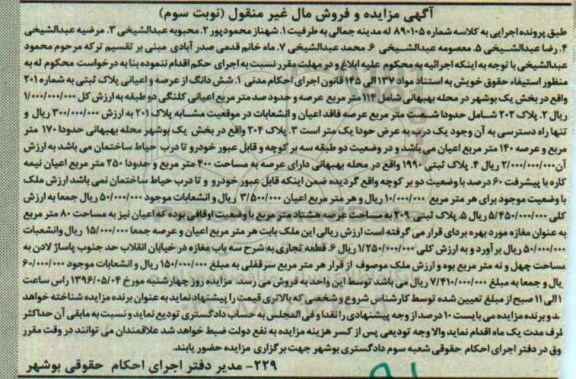 آگهی مزایده و فروش مال غیر منقول (نوبت سوم)
طبق پرونده اجرایی به کلاسه شماره ۸۹۰۱۰۵ له مدینه جمالی به طرفیت ۱. شهناز محمودپور ۲. محبوبه عبدالشیخی ۳. مرضیه عبدالشیخی
۴. رضا عبدالشیخی ۵. معصومه عبدالشیخی ۶. محمد عبدالشیخی ۷. ماه خانم قدمی صدر آبادی مبنی بر تقسیم ترکه مرحوم محمود
عبدالشیخی با توجه به اینکه اجرائیه به محکوم علیه ابلاغ و در مهلت مقرر نسبت به اجرای حکم اقدام ننموده بنا به درخواست محکوم له به
منظور استیفاء حقوق خویش به استناد مواد ۱۳۷ الی ۱۴۵ قانون اجرای احکام مدنی ۱. شش دانگ از عرصه و اعیانی پلاک ثبتی به شماره ۲۰۱
واقع در بخش یک بوشهر در محله بهبهانی شامل ۱۱۴ متر مربع عرصه و حدود صد متر مربع اعیانی کلنگی دو طبقه به ارزش کل ۱/۰۰۰/۰۰۰/۰۰۰
ریال ۲. پلاک ۲۰۲ شامل حدودا شصت متر مربع عرصه فاقد اعیان و انشعابات در موقعیت مشابه پلاک ۲۰۱ به ارزش ۳۰۰/۰۰۰/۰۰۰ ریال و
تنها راه دسترسی به آن وجود یک درب به عرض حودا یک متر است ۳. پلاک ۲۰۴ واقع در بخش یک بوشهر محله بهبهانی حدودا ۱۷۰ متر
مربع و عرصه ۱۴۰ متر مربع اعیان می باشد و در وضعیت دو طبقه سه بر کوچه و قابل عبور خودرو تا درب حیاط ساختمان می باشد به ارزش
آن ۲/۰۰۰/۰۰۰/۰۰۰ ریال ۴. پلاک ثبتی ۱۹۹۰ واقع در محله بهبهانی دارای عرصه به مساحت ۴۰۰ متر مربع و حدودا ۲۵۰ متر مربع اعیان نیمه
کاره با پیشرفت ۶۰ درصد با وضعیت دو بر کوچه واقع گردیده ضمن اینکه قابل عبور خودرو و تا درب حیاط ساختمان نمی باشد ارزش ملک
با وضعیت موجود برای هر متر مربع ۱۰/۰۰۰/۰۰۰ ریال و هر متر مربع اعیان ۳/۵۰۰/۰۰۰ و انشعابات موجود ۵۰/۰۰۰/۰۰۰ ریال جمعا به ارزش
کلی ۵/۴۵۰/۰۰۰/۰۰۰ ریال ۵. پلاک ثبتی ۲۰۹ به مساحت عرصه هشتاد متر مربع با وضعیت اوقافی بوده که اعیان نیز به مساحت ۸۰ متر مربع
به عنوان مغازه مورد بهره بردای قرار می گرفته است ارزش ریالی این ملک بابت هر متر مربع اعیان و عرصه جمعا ۱۵/۰۰۰/۰۰۰ ریال وانشعبات
۵۰/۰۰۰/۰۰۰ ریال بر آورد و به ارزش کلی ۱/۲۵۰/۰۰۰/۰۰۰ ریال ۶. قطعه تجاری به شرح سه باب مغازه در خیابان انقلاب حد جنوب پاساژ لادن به
مساحت چهل و نه متر مربع بوده و ارزش ملک موصوف از قرار هر متر مربع سرقفلی به مبلغ ۱۵۰/۰۰۰/۰۰۰ ریال و انشعابات موجود ۶۰/۰۰۰/۰۰۰
ریال و جمعا به مبلغ ۷/۴۱۰/۰۰۰/۰۰۰ ریال می باشد توسط این واحد به فروش می رسد. مزایده روز چهارشنبه مورخ ۱۳۹۶/۰۵/۰۴ راس ساعت
۱۰ الی ۱۱ صبح از مبلغ تعیین شده توسط کارشناس شروع و شخصی که بالاتری قیمت را پیشنهاد نماید به عنوان برنده مزایده شناخته خواهد
شد و برنده مزایده می بایست ۱۰ درصد از وجه پیشنهادی را نقدا و فی المجلس به حساب دادگستری تودیع نماید و نسبت به مابقی آن حداکثر
ظرف مدت یک ماه اقدام نماید والا وجه تودیعی پس از کسر هزینه مزایده به نفع دولت ضبط خواهد شد علاقمندان می توانند در وقت مقرر
فوق در دفتر اجرای احکام حقوقی شعبه سوم دادگستری بوشهر جهت برگزاری مزایده حضور یابند.
۲۲۹- مدیر دفتر اجرای احکام حقوقی بوشهر